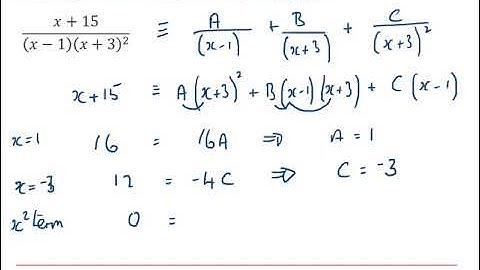 x + 15 / (x − 1)(x + 3)² ≡ A / (x-1) + B / (x+3) + C / (x+3)²
x+15 ≡ A(x+3)² + B(x-1)(x+3) + C(x-1)
x=1 16 = 16A ⇒ A = 1
x=-3 12 = -4C ⇒ C = -3
x² term 0 =